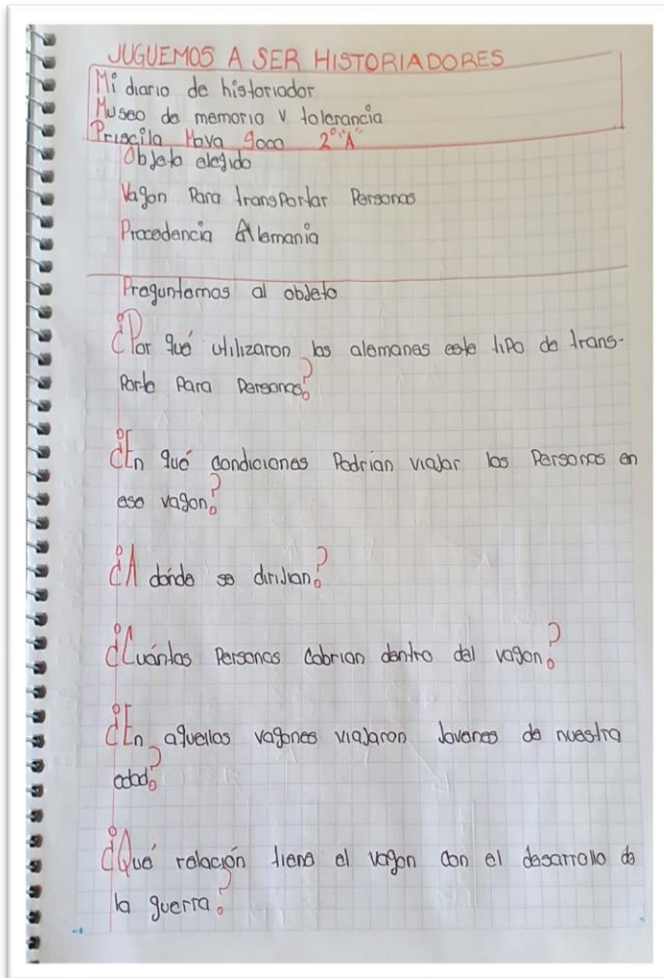 JUGUEMOS A SER HISTORIADORES
Mi diario de historiador
Museo de memoria y tolerancia
Priscila Mova 9oco 2° "A"
Objeto elegido
Vagon Para transPortar Personas
Procedencia Alemania
Preguntemos al objeto
¿Por qué utilizaron los alemanes este tiPo de trans-
Porte Para Personas?
¿En qué condiciones Podrian viajar las Personas en
ese vagon?
¿A dónde se dirijian?
¿Cuántas Personas Cabrian dentro del vagon?
¿En aquellos vagones viajaron Jovenes de nuestra
edad?
¿Qué relación tiene el vagon con el desarrollo de
la guerra?